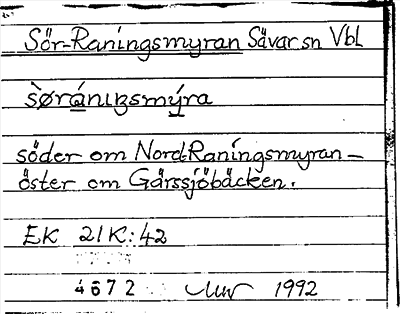 Sör-Raningsmyran Sävar sn Vbl
sørániŋsmýra
söder om Nord-Raningsmyran –
öster om Gärssjöbäcken.
EK 21K:42
4672 1992